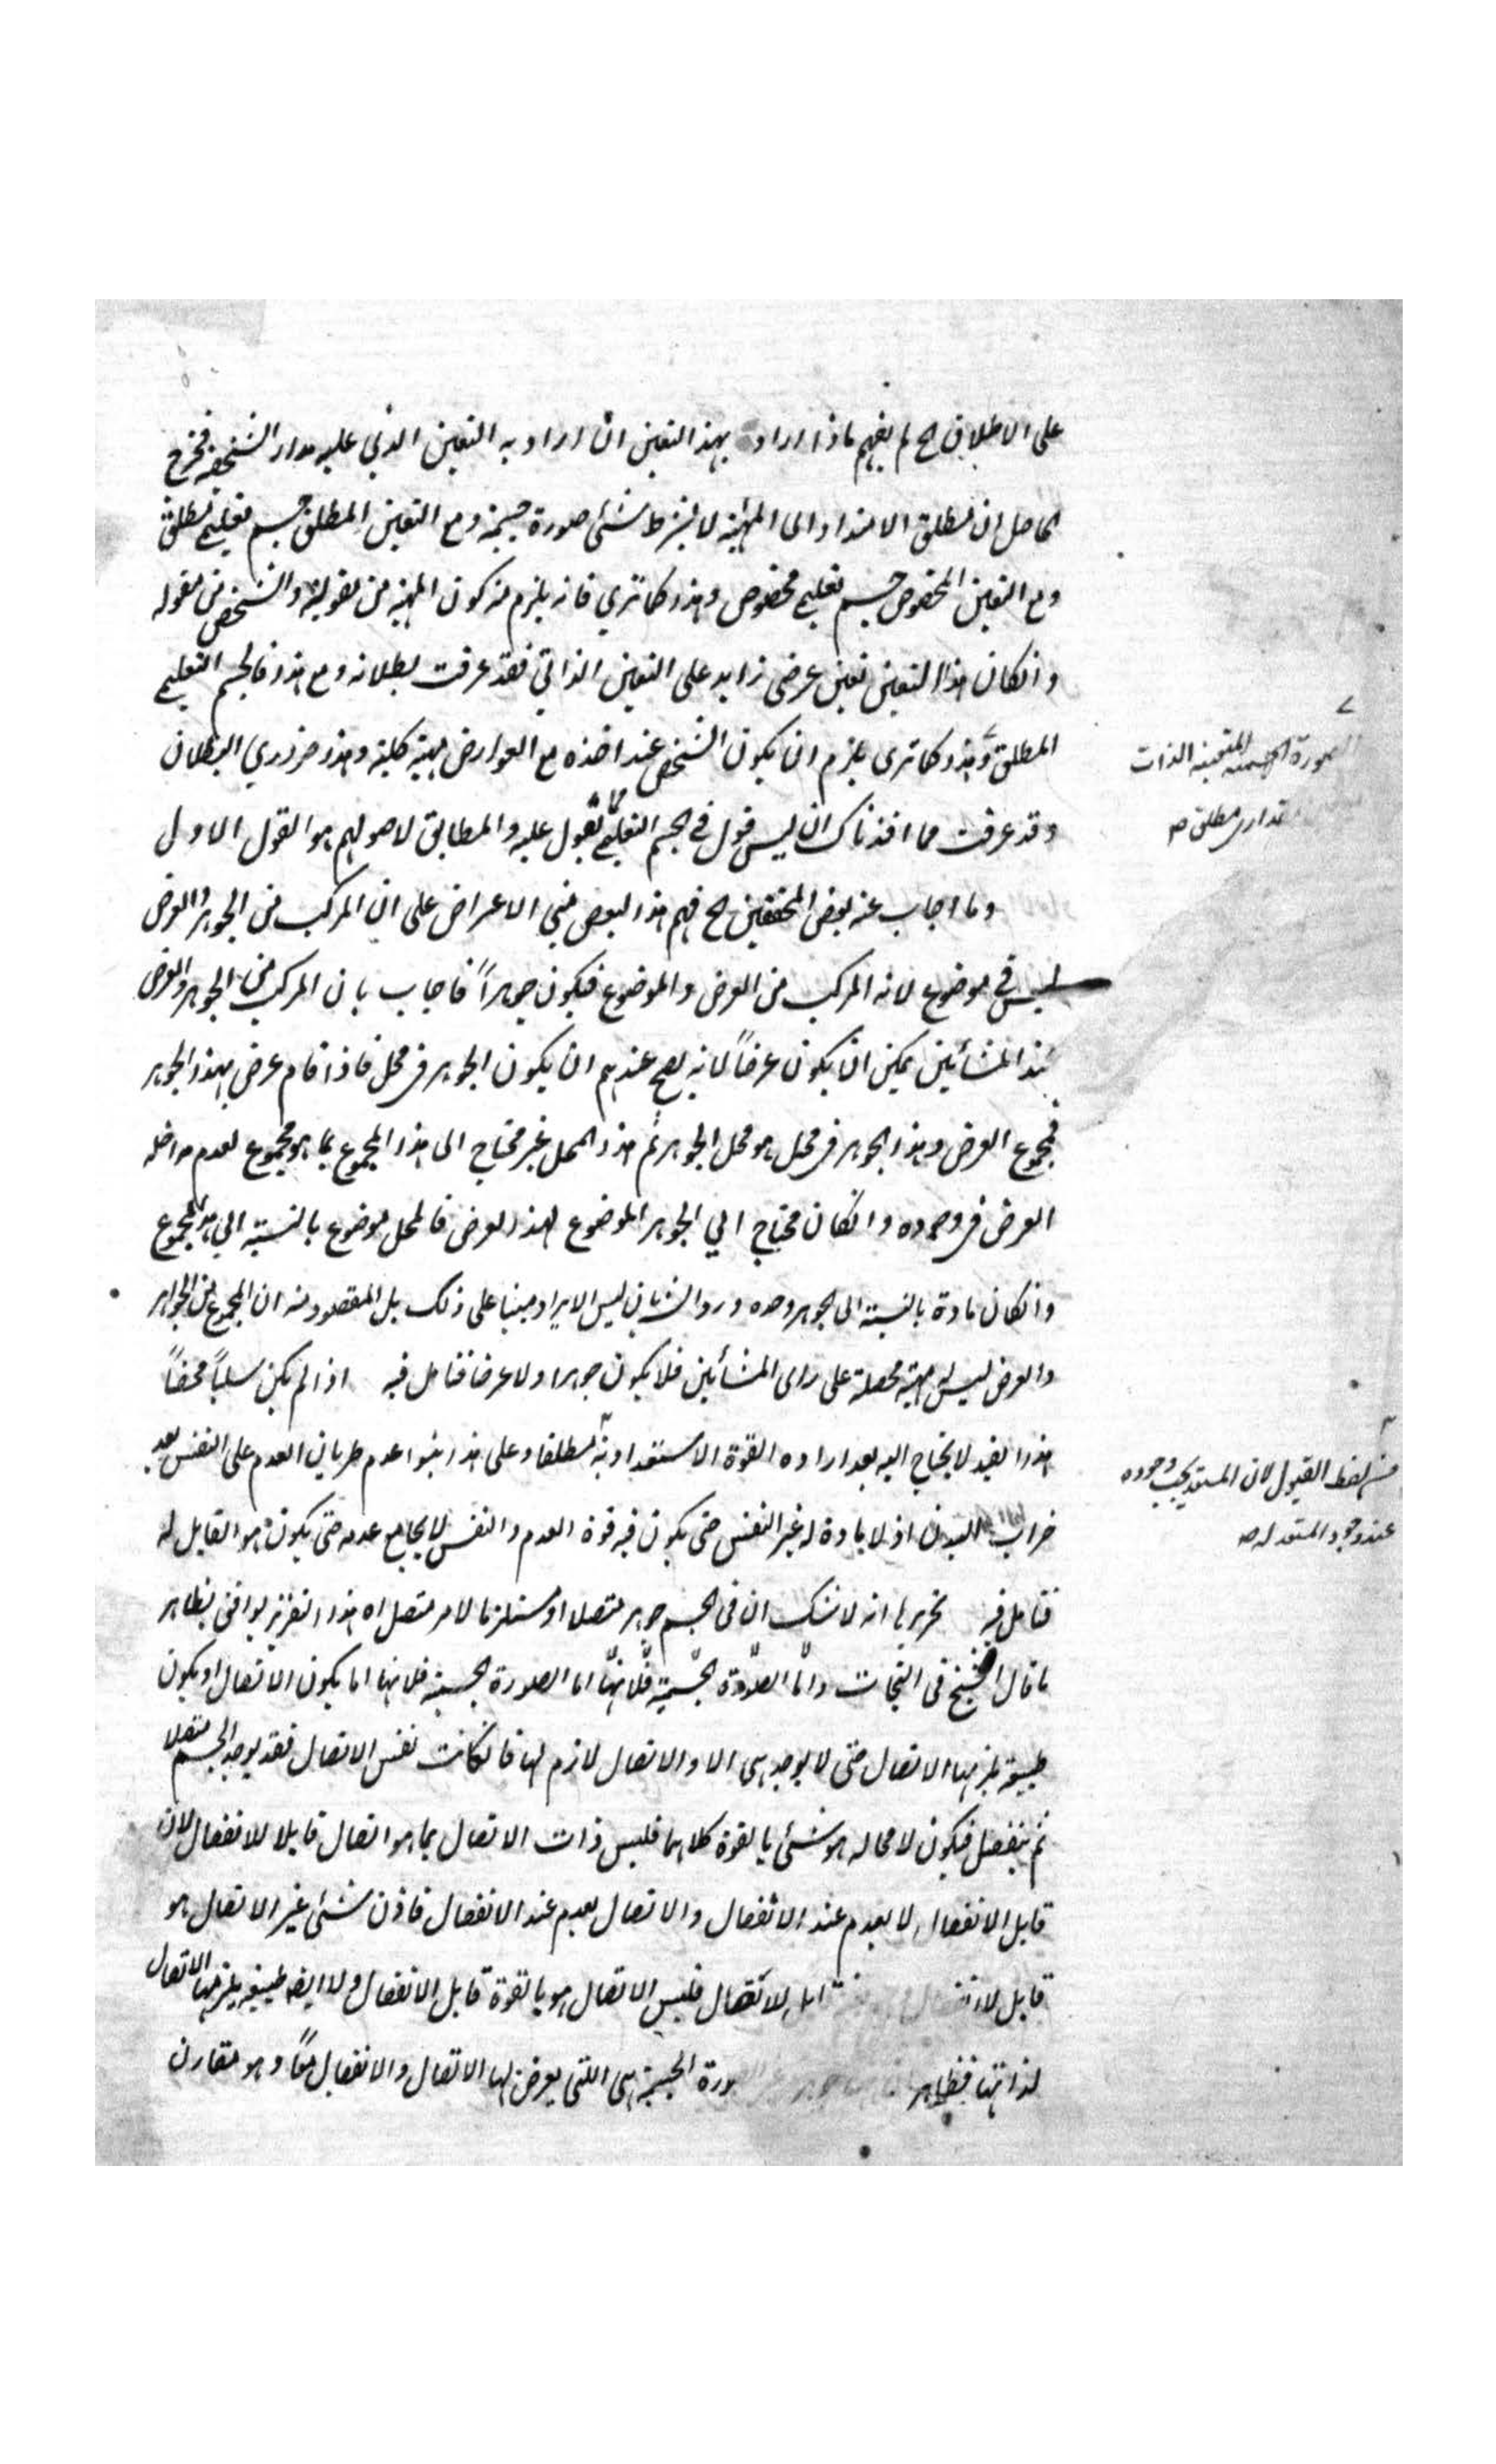 على الاطلاق الخ لم يفهم ماذا اراد بهذا التعين ان اراد به التعين الذي عليه مدار الشخصية فخرج
الحاصل ان مطلق الامتداد الى المهية لا بشرط شئ صورة جسمية ومع التعين المطلق جسم تعليمي مطلق
ومع التعين المخصوص جسم تعليمي مخصوص وهذا كما تري فانه يلزم منه كون المهية من مقولة والشخص من مقوله
وانكان هذا التعين تعين عرضى زايد على التعين الذاتي فقد عرفت بطلانه ومع هذا فالجسم التعليمي
المطلق وهذا كما ترى يلزم ان يكون الشخص عند اخذه مع العوارض مهية كلية وهذا ضروري البطلان
الصورة الجسمية المتعينة الذات
مقدار مطلق صح
وقد عرفت مما افدناك ان ليس قول في الجسم التعليمي يقول عليه والمطابق لاصولهم هو القول الاول
وما اجاب عنه بعض المحققين الخ فهم هذا البعض مبني الاعراض على ان المركب من الجوهر والعرض
ليس في موضوع لانه المركب من العرض والموضوع فيكون جوهراً فاجاب بان المركب من الجوهر والعرض
عند المشأيين يمكن ان يكون عرضاً لانه يصح عندهم ان يكون الجوهر فى محل فاذا قام عرض بهذا الجوهر
فمجموع العرض وهذا الجوهر فى محل هو محل الجوهر ثم هذا المحل غير محتاج الى هذا المجموع بما هو مجموع لعدم مداخله
العرض فى وجوده وانكان محتاج الي الجوهر الموضوع لهذا العرض فالمحل موضوع بالنسبة الي هذا المجموع
وانكان مادة بالنسبة الى الجوهر وحده ورد الشارح بان ليس الايراد مبنيا على ذلك بل المقصود منه ان المجموع من الجواهر
والعرض ليس له مهية محصلة على راى المشأيين فلا يكون جوهرا ولا عرضا فتامل فيه اذا لم يكن سلباً محضاً
هذا القيد لا يحتاج اليه بعد اراده القوة الاستعدادية مطلقا وعلى هذا بنوا عدم طريان العدم على النفس بعد
من لفظ القبول لان المستعد يجب وجوده
عند وجود المستعد له صح
خراب البدن اذ لا مادة له غير النفس حتى يكون فيه قوة العدم والنفس لا يجامع عدمه حتى يكون هو القابل له
فتامل فيه تحريرها انه لا شك ان فى الجسم جوهر متصلا او مستلزما لامر متصل اه هذا التقرير يوافق بظاهر
ما قال الشيخ فى النجات واما الصورة الجسمية فلانها اما الصورة الجسمية فلانها اما يكون الاتصال او يكون
طبيعة يلزمها الاتصال حتى لا يوجد هى الا والاتصال لازم لها فانكانت نفس الاتصال فقد يوجد الجسم متصلا
ثم ينفصل فيكون لا محاله هو شئ بالقوة كلاهما فليس ذات الاتصال بما هو اتصال قابلا للانفصال لان
قابل الانفصال لا يعدم عند الانفصال والاتصال يعدم عند الانفصال فاذن شئ غير الاتصال هو
قابل للانفصال الاتصال فليس الاتصال هو بالقوة قابل الانفصال ولا ايضا طبيعيه يلزمها الاتصال
لذاتها فظاهر الجسمية هى اللتى يعرض لها الاتصال والانفصال معاً وهو مقارن